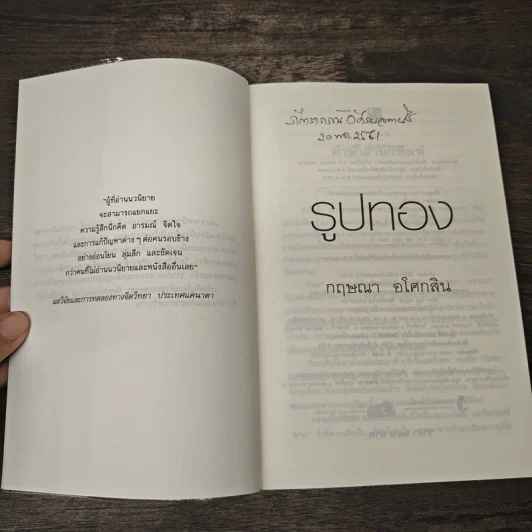 "ผู้ที่อ่านนวนิยาย
จะสามารถแยกแยะ
ความรู้สึกนึกคิด อารมณ์ จิตใจ
และการแก้ปัญหาต่าง ๆ ต่อคนรอบข้าง
อย่างอ่อนโยน ลุ่มลึก และชัดเจน
กว่าคนที่ไม่อ่านนวนิยายและหนังสืออื่นเลย"
ผลวิจัยและการทดลองทางจิตวิทยา ประเทศแคนาดา
๒๐ พ.ค. 2561.
รูปทอง
กฤษณา อโศกสิน